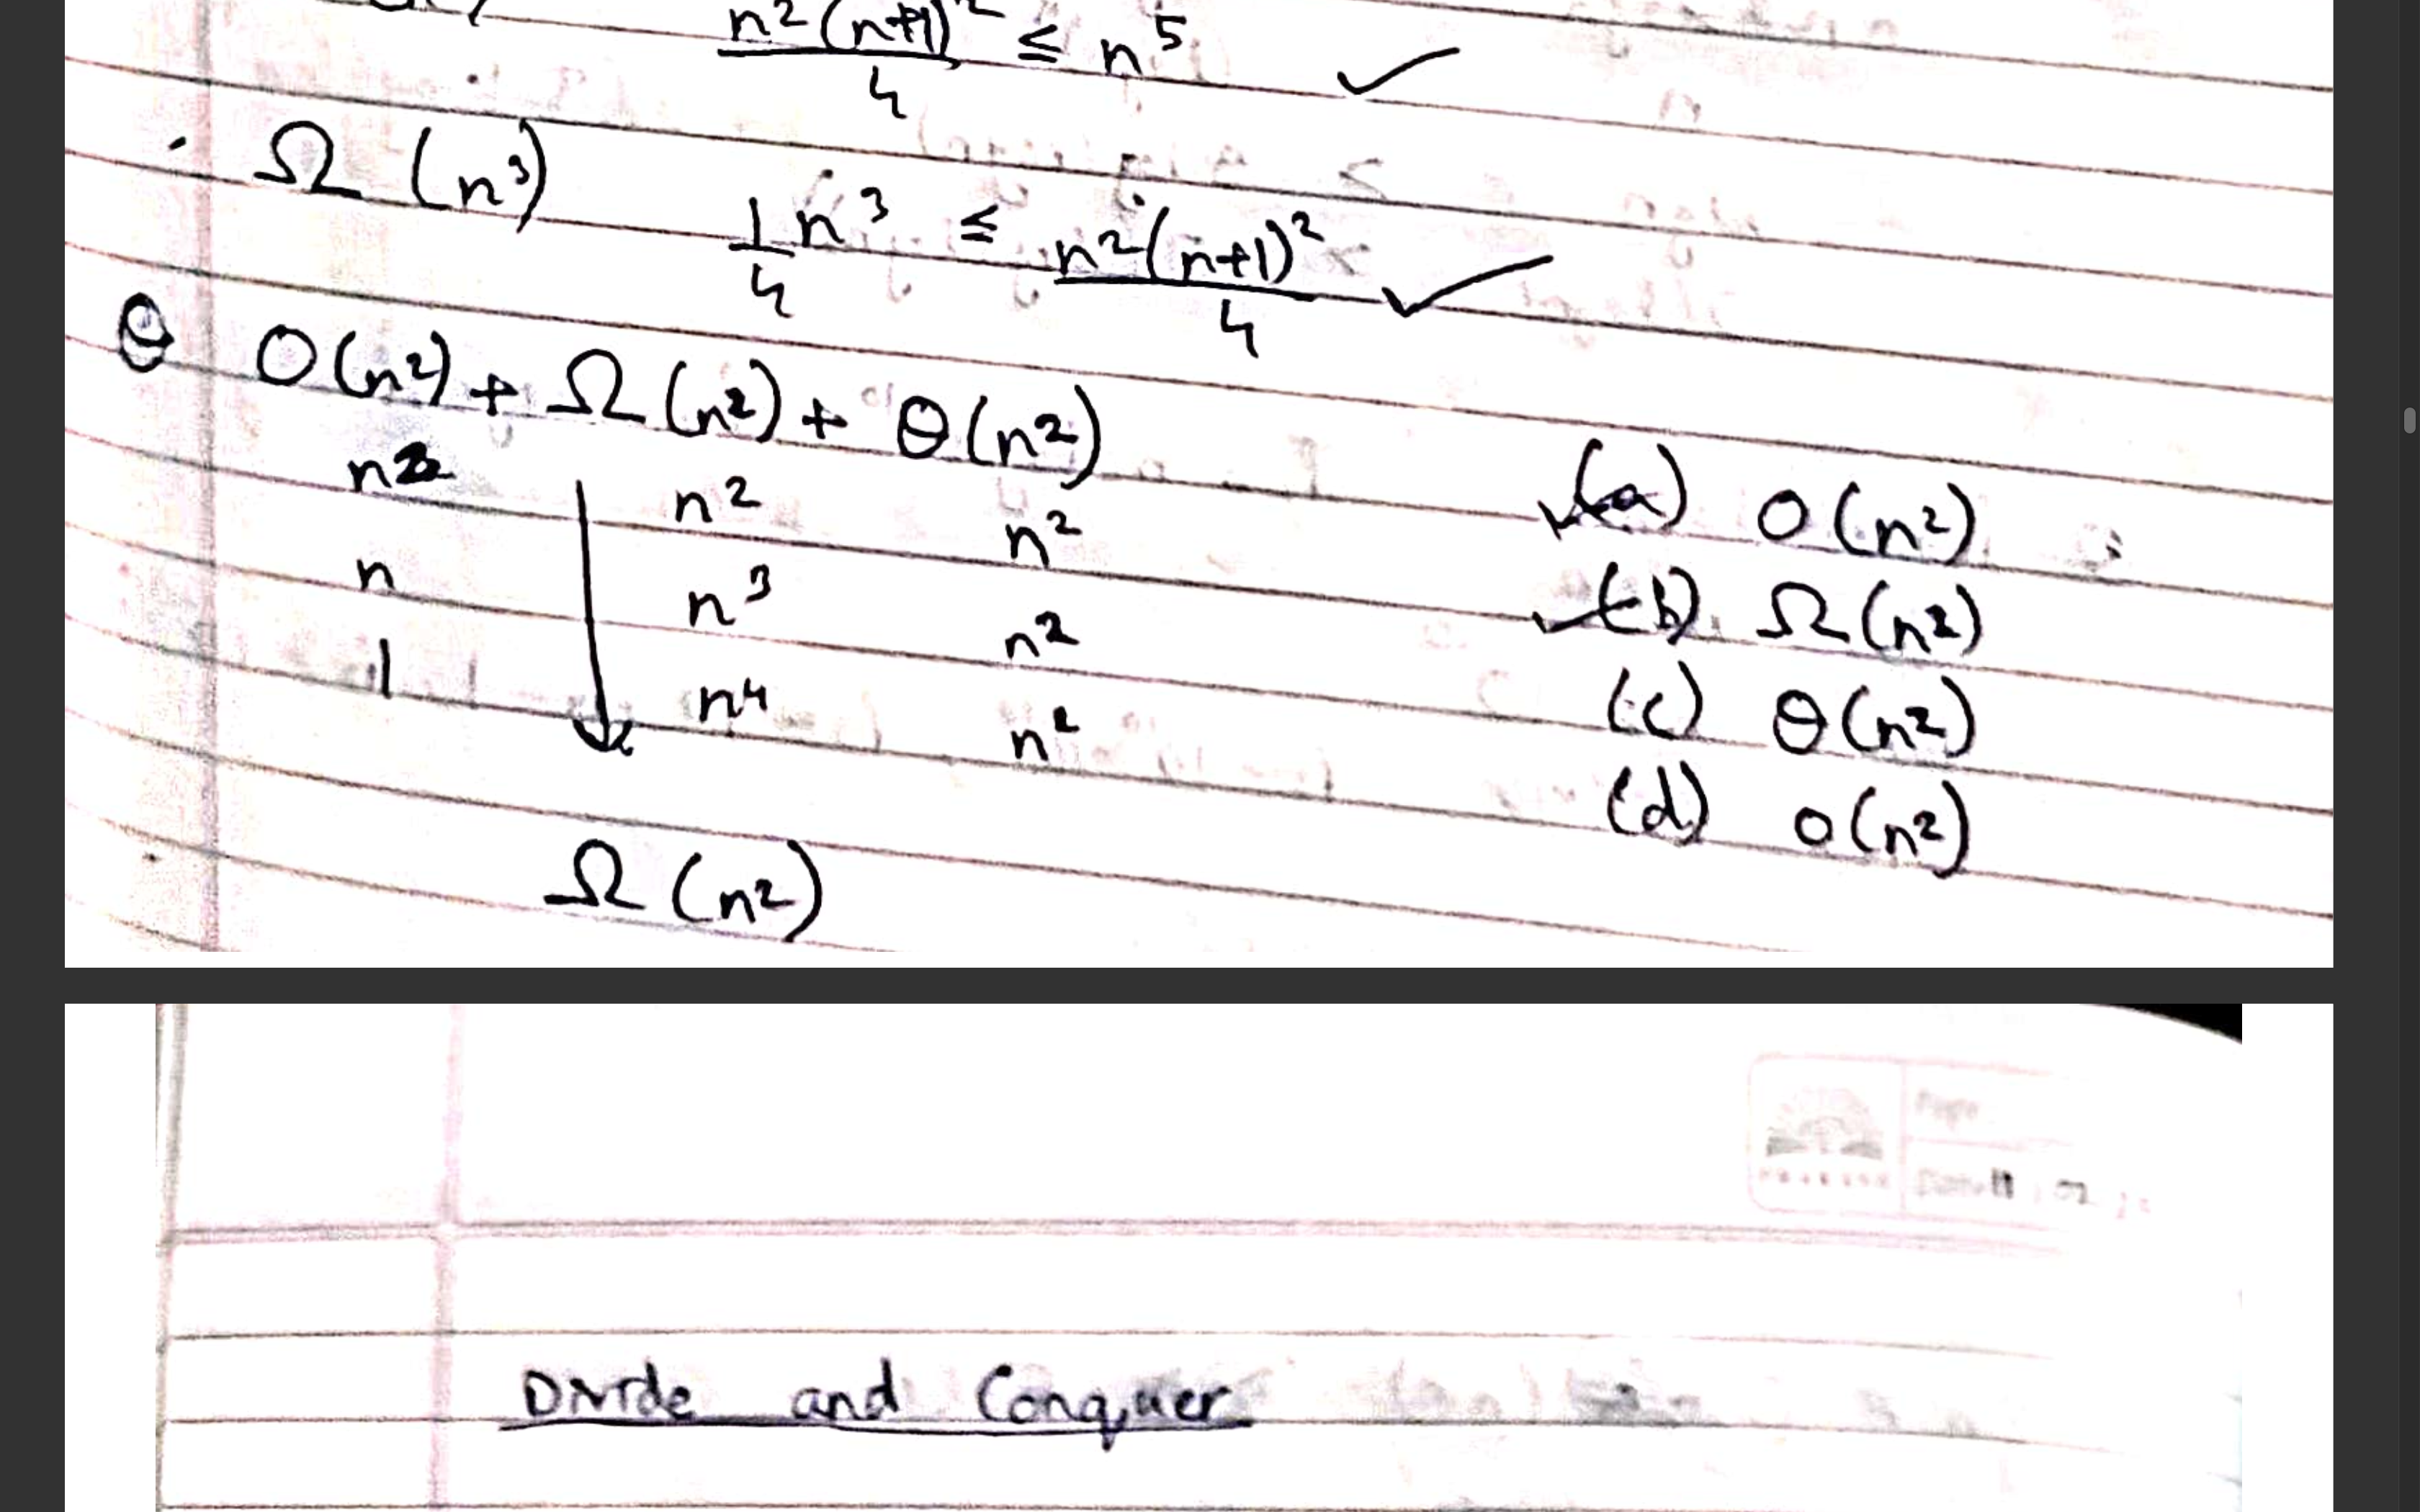 n²(n+1)² / 4 ≤ n⁵ ✓
· Ω (n³) 1/4 n³ ≤ n²(n+1)² / 4 ✓
θ O(n²) + Ω(n²) + θ(n²)
n² n² n² ✓(a) O(n²)
n n³ n² ✓(b) Ω(n²)
1 n⁴ n² (c) θ(n²)
(d) o(n²)
Ω (n²)
Page
Divide and Conquer